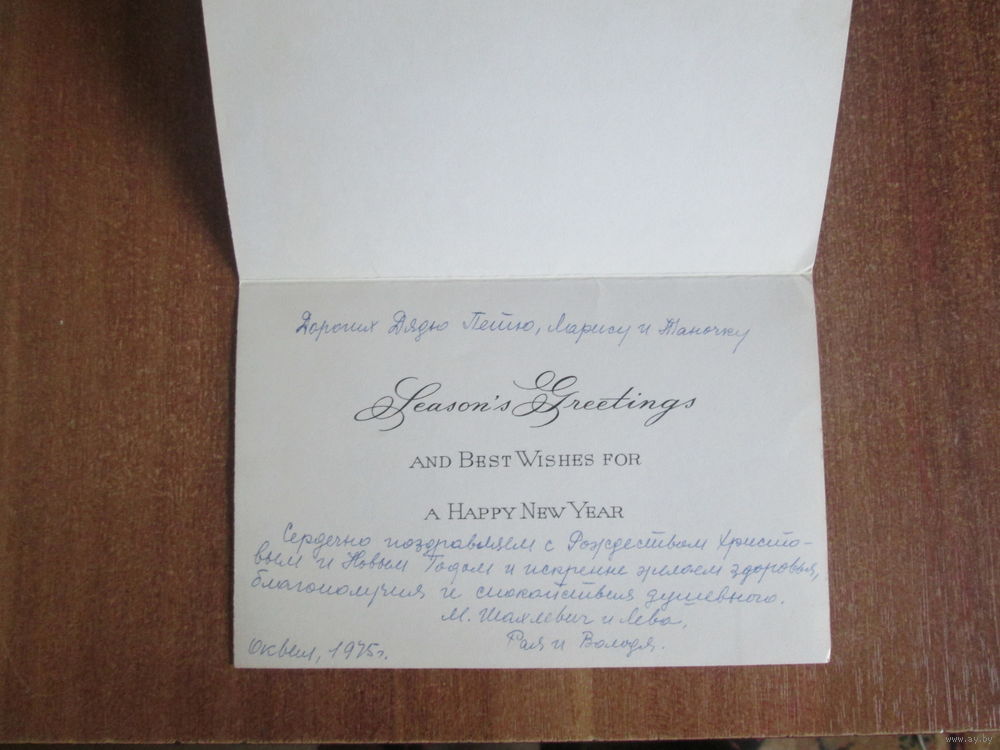 Дорогих Дядю Петю, Ларису и Таночку
Season's Greetings
AND BEST WISHES FOR
A HAPPY NEW YEAR
Сердечно поздравляем с Рождеством Христо-
вым и Новым Годом и искренне желаем здоровья,
благополучия и спокойствия душевного.
М. Шахлевич и Лёва,
Рая и Володя.
Оквил, 1975г.
www.ay.by